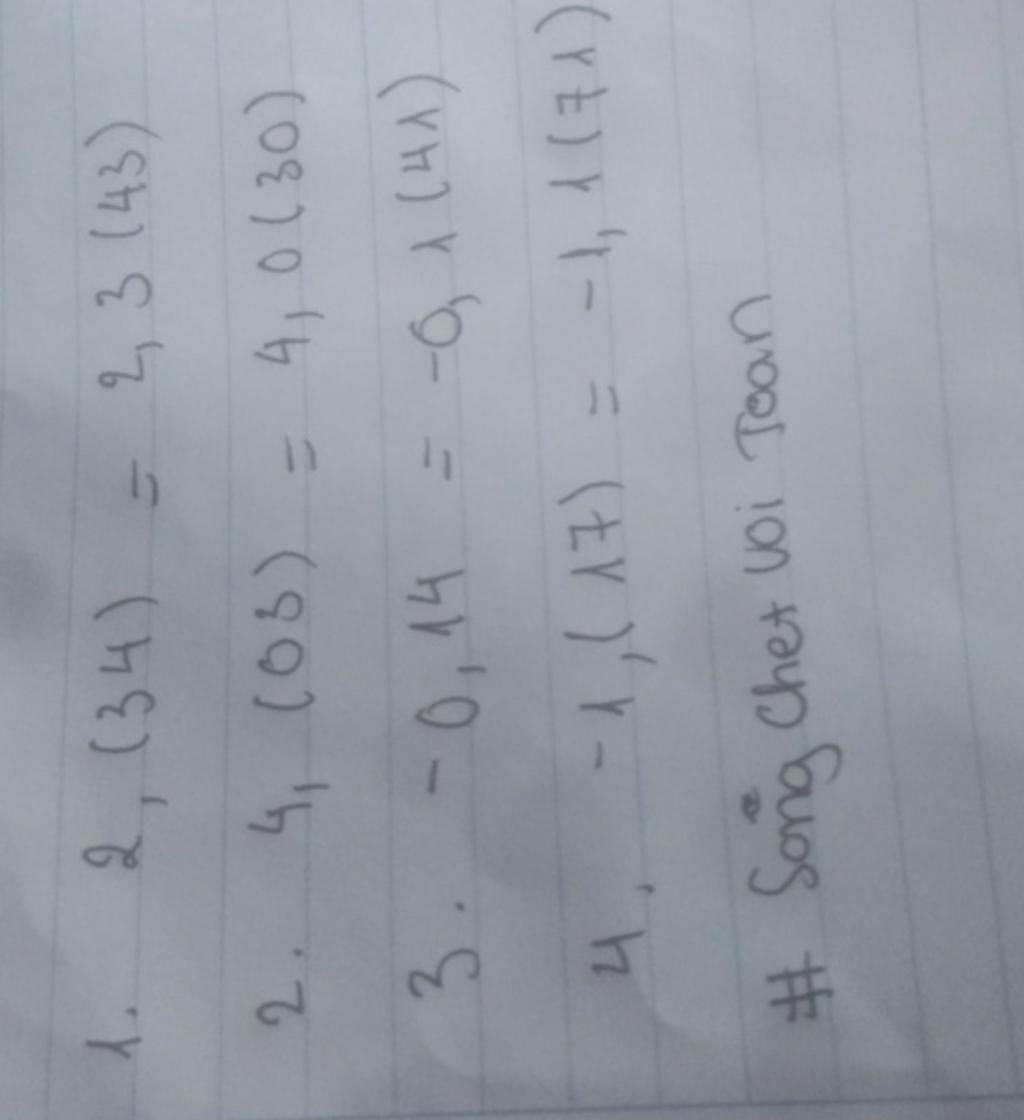 1. 2,(34) = 2,3(43)
2. 4,(03) = 4,0(30)
3. -0,14 = -0,1(41)
4, -1,(17) = -1,1(71)
# Sống Chet Voi Toan